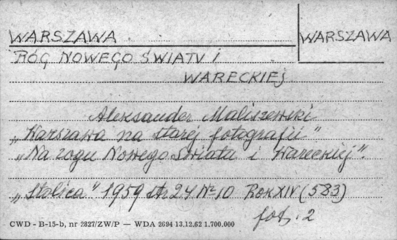 WARSZAWA WARSZAWA
RÓG NOWEGO ŚWIATU I
WARECKIEJ
Aleksander Maliszewski
„Warszawa na starej fotografii"
„Na rogu Nowego Świata i Wareckiej".
„Stolica" 1959 str. 24 № 10 Rok XIV (583)
fot. 2
CWD - B-15-b, nr 2827/ZW/P — WDA 2694 13.12.62 1.700.000